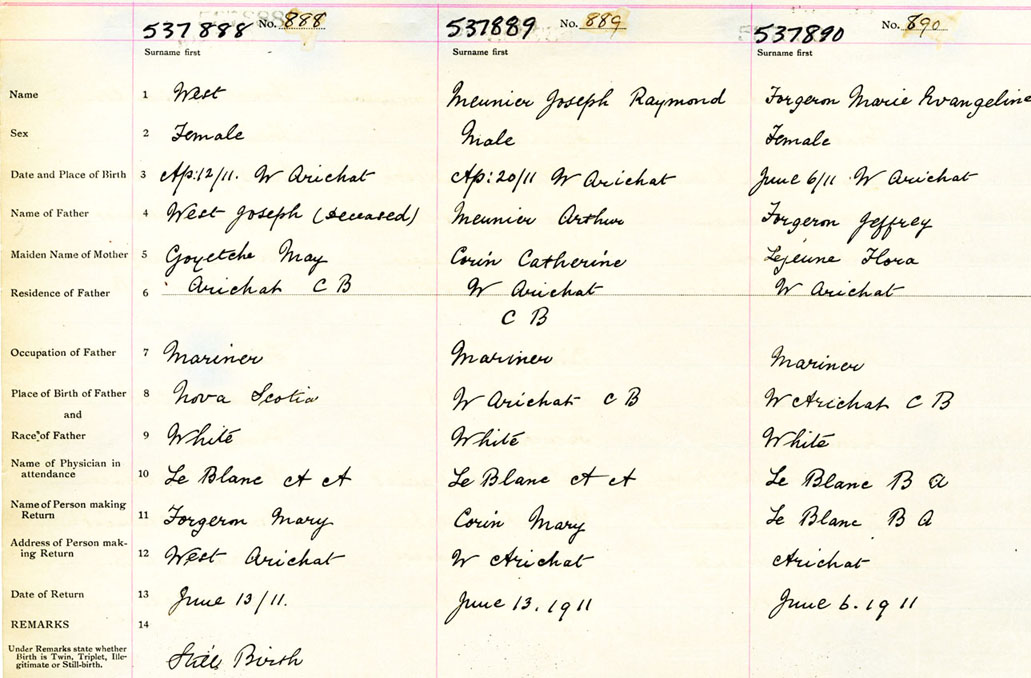 537888 No. 888 537889 No. 889 537890 No. 890
Surname first Surname first Surname first
Name 1 West Meunier Joseph Raymond Forgeron Marie Evangeline
Sex 2 Female Male Female
Date and Place of Birth 3 Ap: 12/11. W Arichat Ap: 20/11 W Arichat June 6/11 W Arichat
Name of Father 4 West Joseph (deceased) Meunier Arthur Forgeron Jeffrey
Maiden Name of Mother 5 Goyetche May Corin Catherine Lejeune Flora
Residence of Father 6 Arichat C B W Arichat W Arichat
C B
Occupation of Father 7 Mariner Mariner Mariner
Place of Birth of Father 8 Nova Scotia W Arichat C B W Arichat C B
and
Race of Father 9 White White White
Name of Physician in
attendance 10 Le Blanc A A Le Blanc A A Le Blanc B A
Name of Person making
Return 11 Forgeron Mary Corin Mary Le Blanc B A
Address of Person mak-
ing Return 12 West Arichat W Arichat Arichat
Date of Return 13 June 13/11. June 13. 1911 June 6. 1911
REMARKS 14
Under Remarks state whether
Birth is Twin, Triplet, Ille-
gitimate or Still-birth. Still Birth